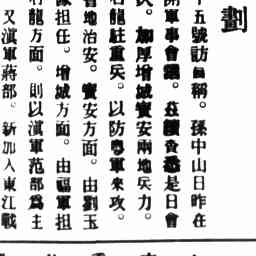 劃
十五號訪員稱。孫中山日昨在
開軍事會議。茲續查悉是日會
兵。加厚增城寶安兩地兵力。
石龍駐重兵。以防粵軍來攻。
當地治安。寶安方面。由劉玉
擔任。增城方面。由福軍担
石龍方面。則以滇軍范部為主
又滇軍蔣部。新加入東江戰